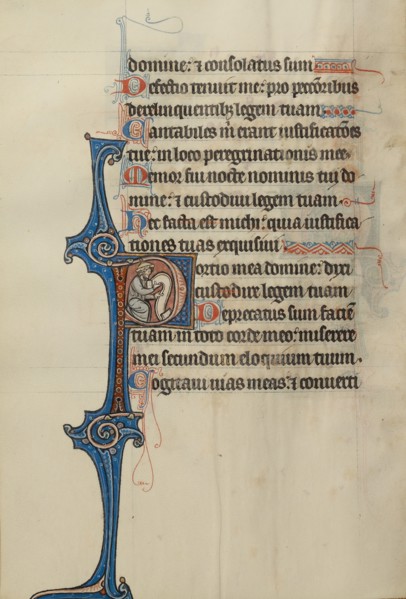 domine: ⁊ consolatus sum
Defectio tenuit me: pro peccatoribus
derelinquentibꝫ legem tuam
Cantabiles m̅ erant iustificatiōes
tue: in loco peregrinationis mee
Memor fui nocte nominis tui do
mine: ⁊ custodiui legem tuam
Hec facta est michi: quia iustifica
tiones tuas exquisiui
Portio mea domine: dixi
custodire legem tuam
Deprecatus sum faciē
tuam in toto corde meo: miserere
mei secundum eloquium tuum
Cogitaui uias meas: ⁊ conuerti